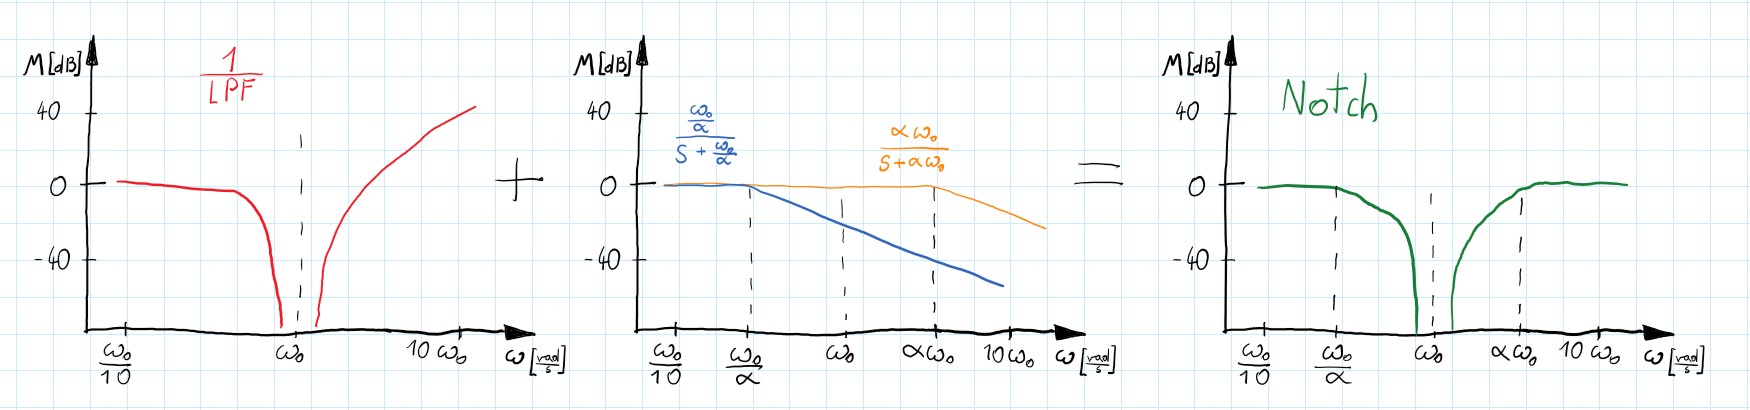 M[dB]
1
LPF
40
0
-40
ω₀
10
ω₀
10 ω₀
ω [rad/s]
+
M[dB]
ω₀
α
S + ω₀/α
αω₀
S+αω₀
40
0
-40
ω₀
10
ω₀
α
ω₀
αω₀
10ω₀
ω [rad/s]
=
M[dB]
Notch
40
0
-40
ω₀
10
ω₀
α
ω₀
αω₀
10 ω₀
ω [rad/s]